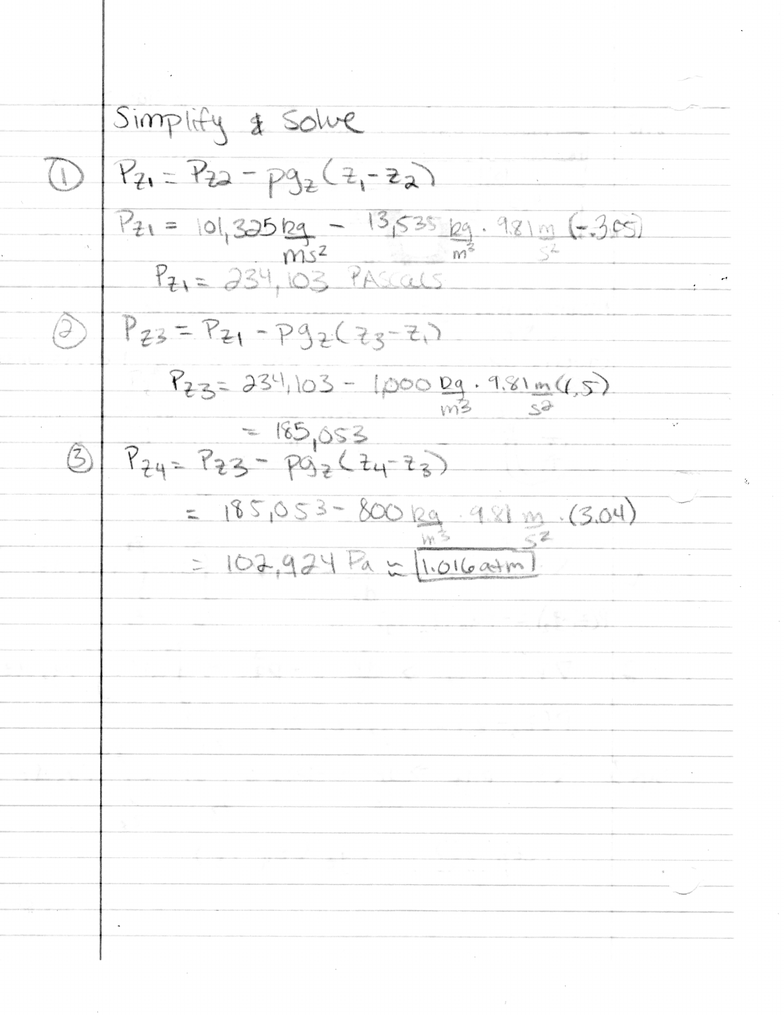 Simplify & Solve
① P_Z1 = P_Z2 - ρg_z(z₁-z₂)
P_Z1 = 101,325 kg/ms² - 13,535 kg/m³ · 9.81 m/s² (-.305)
P_Z1 = 234,103 PAscals
② P_Z3 = P_Z1 - ρg_z(z₃-z₁)
P_Z3 = 234,103 - 1,000 kg/m³ · 9.81 m/s² ( , 5)
= 185,053
③ P_Z4 = P_Z3 - ρg_z(z₄-z₃)
= 185,053 - 800 kg/m³ · 9.81 m/s² · (3.04)
= 102,924 Pa ≈ 1.016 atm